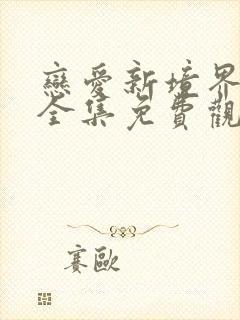 戀愛新境界
全集免費觀
賽歐